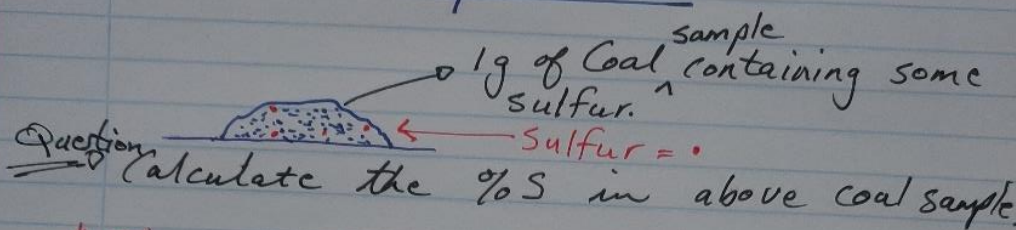 1g of Coal ^ sample containing some
sulfur.
Sulfur = •
Question
Calculate the %S in above coal sample.